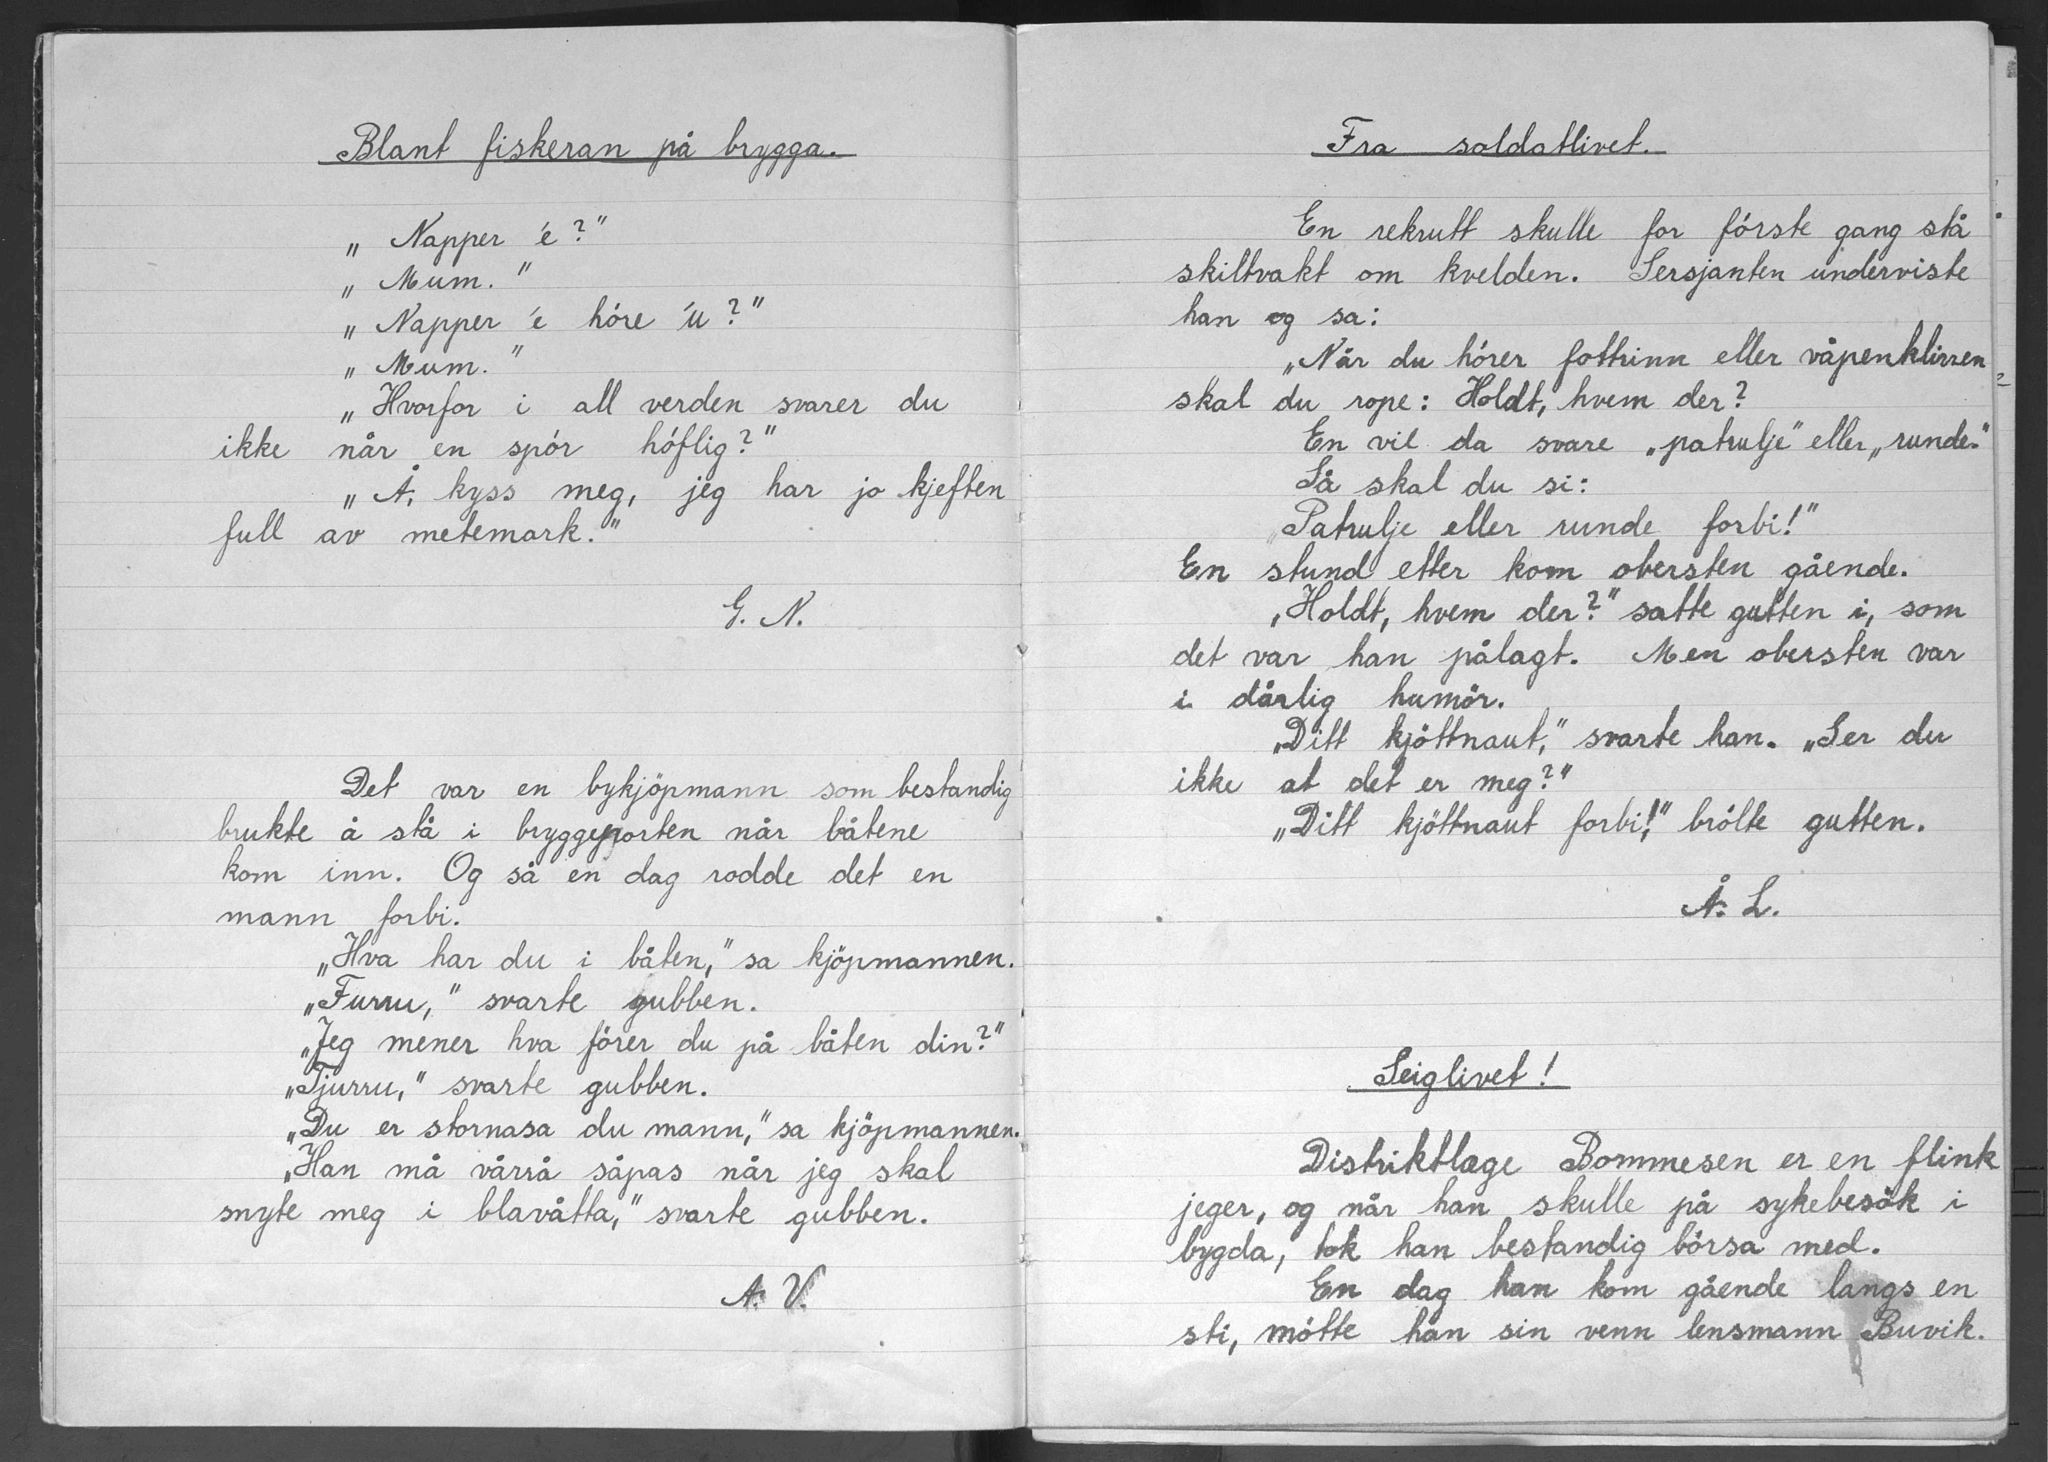 Blant fiskeran på brygga.
„Napper 'e?"
„Mum."
„Napper 'e höre 'u?"
„Mum."
„Hvorfor i all verden svarer du
ikke når en spör höflig?"
„Å, kyss meg, jeg har jo kjeften
full av metemark."
G. N.
Det var en bykjöpmann som bestandig
brukte å stå i bryggeporten når båtene
kom inn. Og så en dag rodde det en
mann forbi.
„Hva har du i båten," sa kjöpmannen.
„Furru," svarte gubben.
„Jeg mener hva förer du på båten din?"
„Tjurru," svarte gubben.
„Du er stornasa du mann," sa kjöpmannen.
„Han må vårrå såpas når jeg skal
snyte meg i blavåtta," svarte gubben.
A. V.
Fra soldatlivet.
En rekrutt skulle for förste gang stå
skiltvakt om kvelden. Sersjanten underviste
han og sa:
„Når du hörer fottrinn eller våpenklirren
skal du rope: Holdt, hvem der?
En vil da svare „patrulje" eller „runde."
Så skal du si:
„Patrulje eller runde forbi!"
En stund etter kom obersten gående.
„Holdt, hvem der?" satte gutten i, som
det var han pålagt. Men obersten var
i dårlig humör.
„Ditt kjöttnaut," svarte han. „Ser du
ikke at det er meg?"
„Ditt kjöttnaut forbi!" brölte gutten.
Å. L.
Seiglivet!
Distriktlæge Bommesen er en flink
jeger, og når han skulle på sykebesök i
bygda, tok han bestandig börsa med.
En dag han kom gående langs en
sti, mötte han sin venn lensmann Buvik.